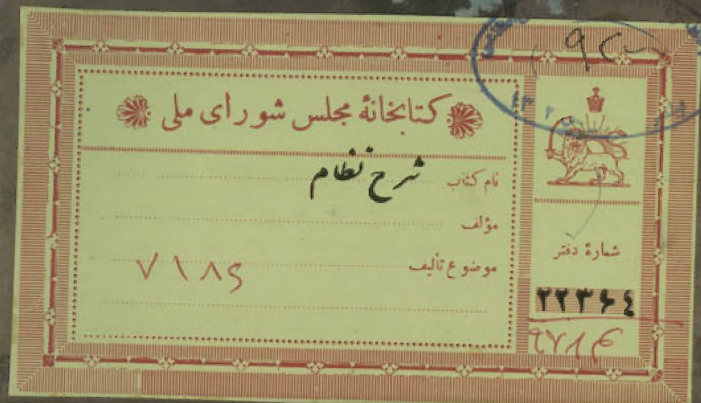 کتابخانهٔ مجلس شورای ملی
نام کتاب شرح نظام
مؤلف
موضوع تألیف
۷۱۸۶
شمارهٔ دفتر
۲۲۳۶۴